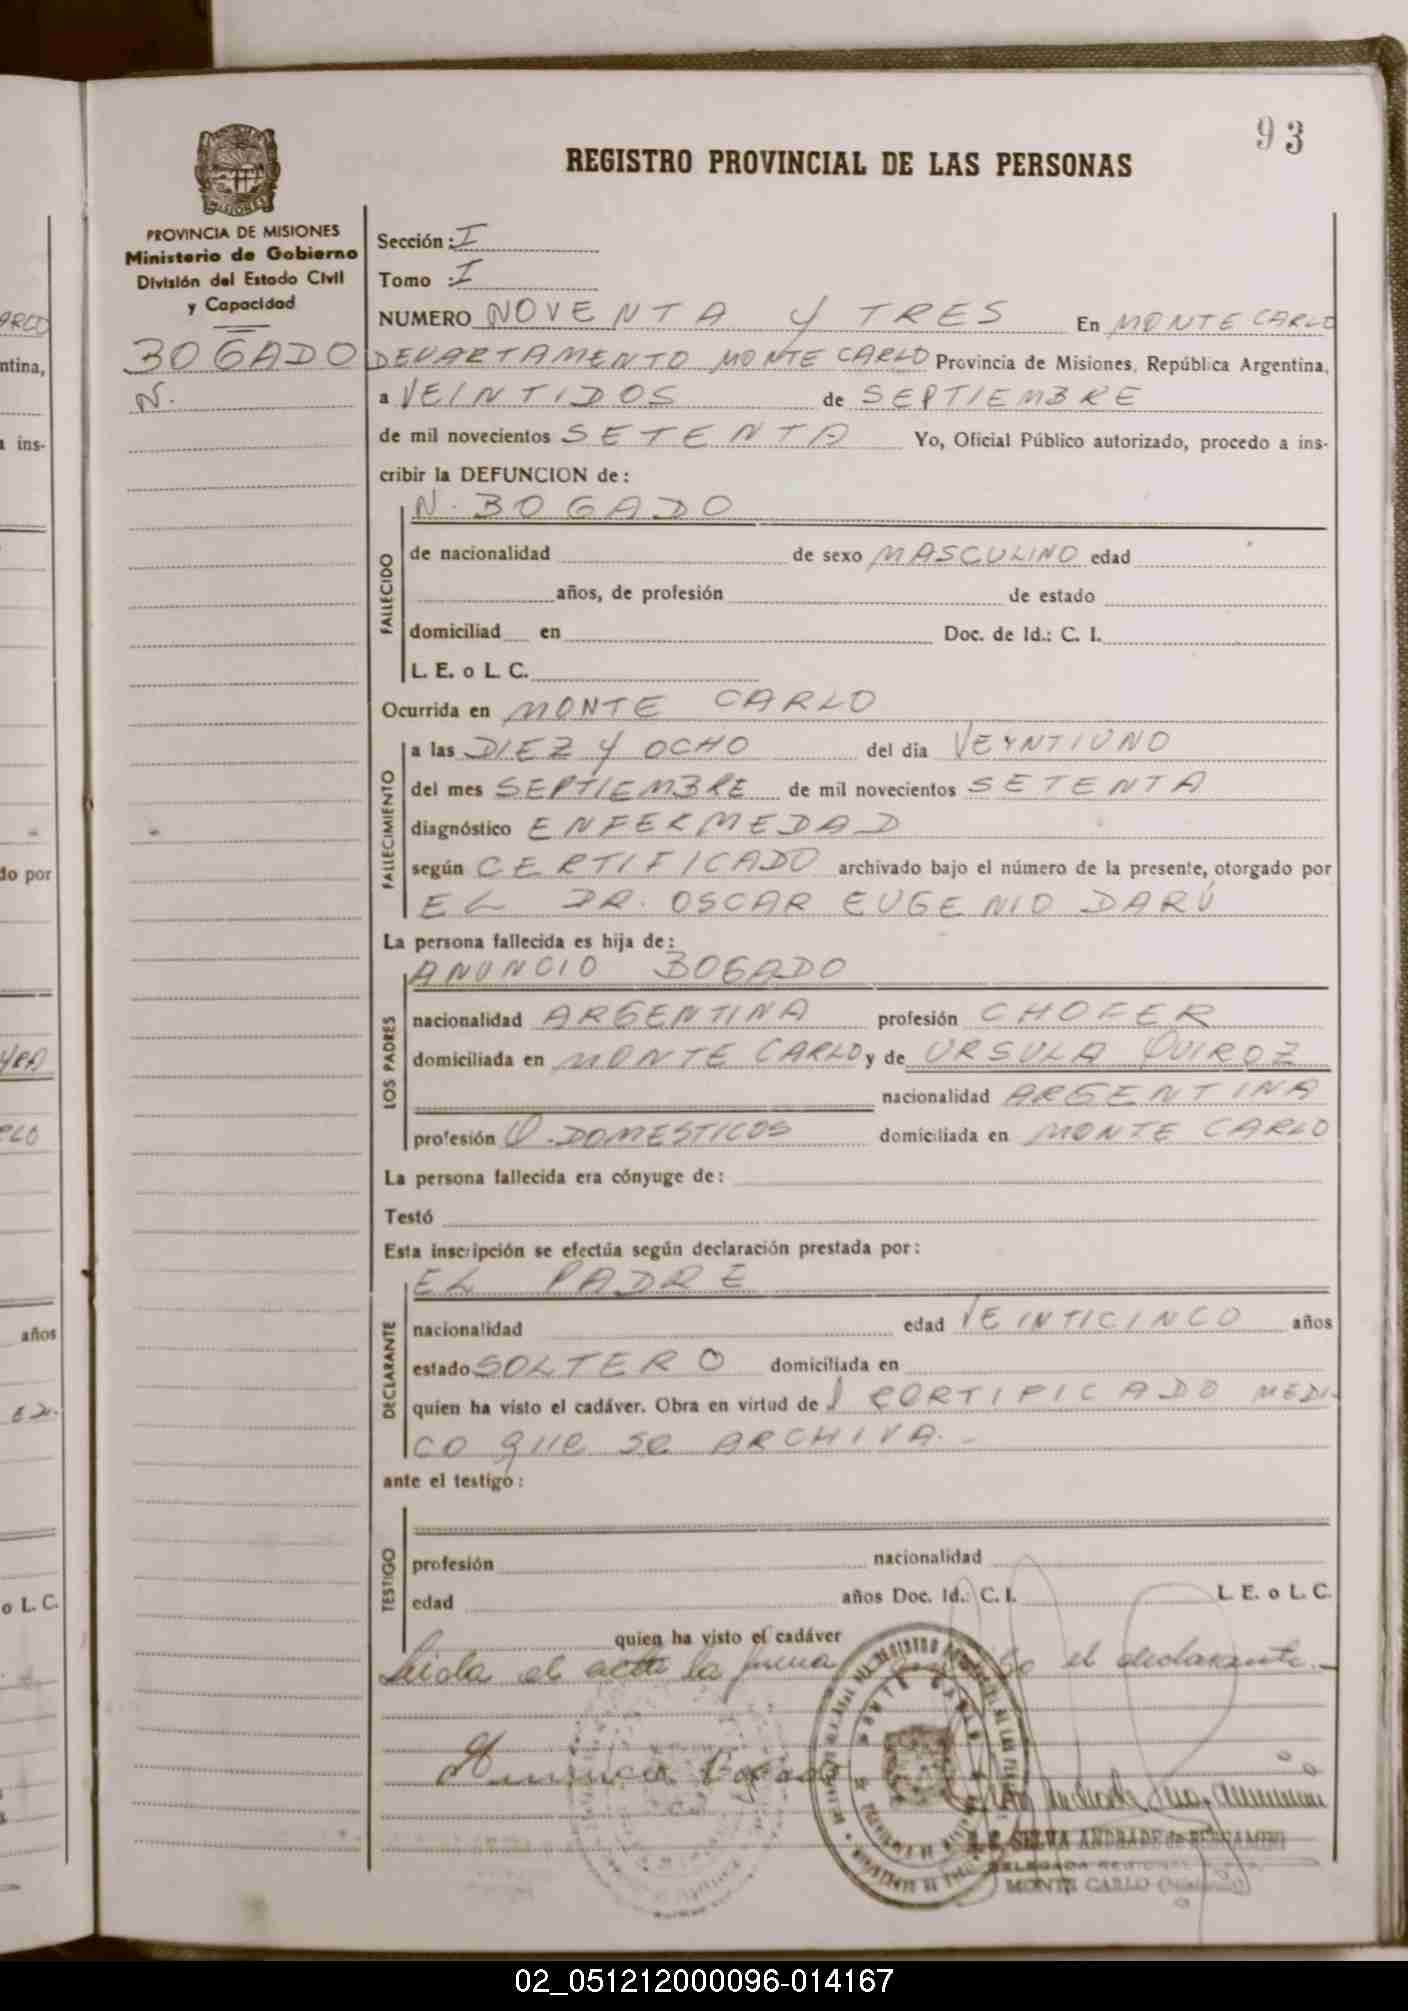 93
REGISTRO PROVINCIAL DE LAS PERSONAS
PROVINCIA DE MISIONES
Ministerio de Gobierno
División del Estado Civil
y Capacidad
BOGADO
N.
Sección : I
Tomo : I
NUMERO NOVENTA Y TRES En MONTE CARLO
DEPARTAMENTO MONTE CARLO Provincia de Misiones, República Argentina,
a VEINTIDOS de SEPTIEMBRE
de mil novecientos SETENTA Yo, Oficial Público autorizado, procedo a ins-
cribir la DEFUNCION de :
N. BOGADO
FALLECIDO
de nacionalidad de sexo MASCULINO edad
años, de profesión de estado
domiciliad en Doc. de Id.: C. I.
L. E. o L. C.
Ocurrida en MONTE CARLO
FALLECIMIENTO
a las DIEZ Y OCHO del día VEYNTIUNO
del mes SEPTIEMBRE de mil novecientos SETENTA
diagnóstico ENFERMEDAD
según CERTIFICADO archivado bajo el número de la presente, otorgado por
EL DR. OSCAR EUGENIO DARÚ
La persona fallecida es hija de :
ANUNCIO BOGADO
LOS PADRES
nacionalidad ARGENTINA profesión CHOFER
domiciliada en MONTE CARLO y de URSULA QUIROZ
nacionalidad ARGENTINA
profesión Q. DOMESTICOS domiciliada en MONTE CARLO
La persona fallecida era cónyuge de :
Testó
Esta inscripción se efectúa según declaración prestada por :
EL PADRE
DECLARANTE
nacionalidad edad VEINTICINCO años
estado SOLTERO domiciliada en
quien ha visto el cadáver. Obra en virtud de l CERTIFICADO MEDI-
CO que se ARCHIVA.-
ante el testigo :
TESTIGO
profesión nacionalidad
edad años Doc. Id.: C. I. L. E. o L. C.
quien ha visto el cadáver
Leida el acta la firma el declarante.-
SELVA ANDRADE de BERGAMINI
DELEGADA REGIONAL
MONTE CARLO (Misiones)
ARLO
ntina,
a ins-
do por
años
o L. C.
02_051212000096-014167